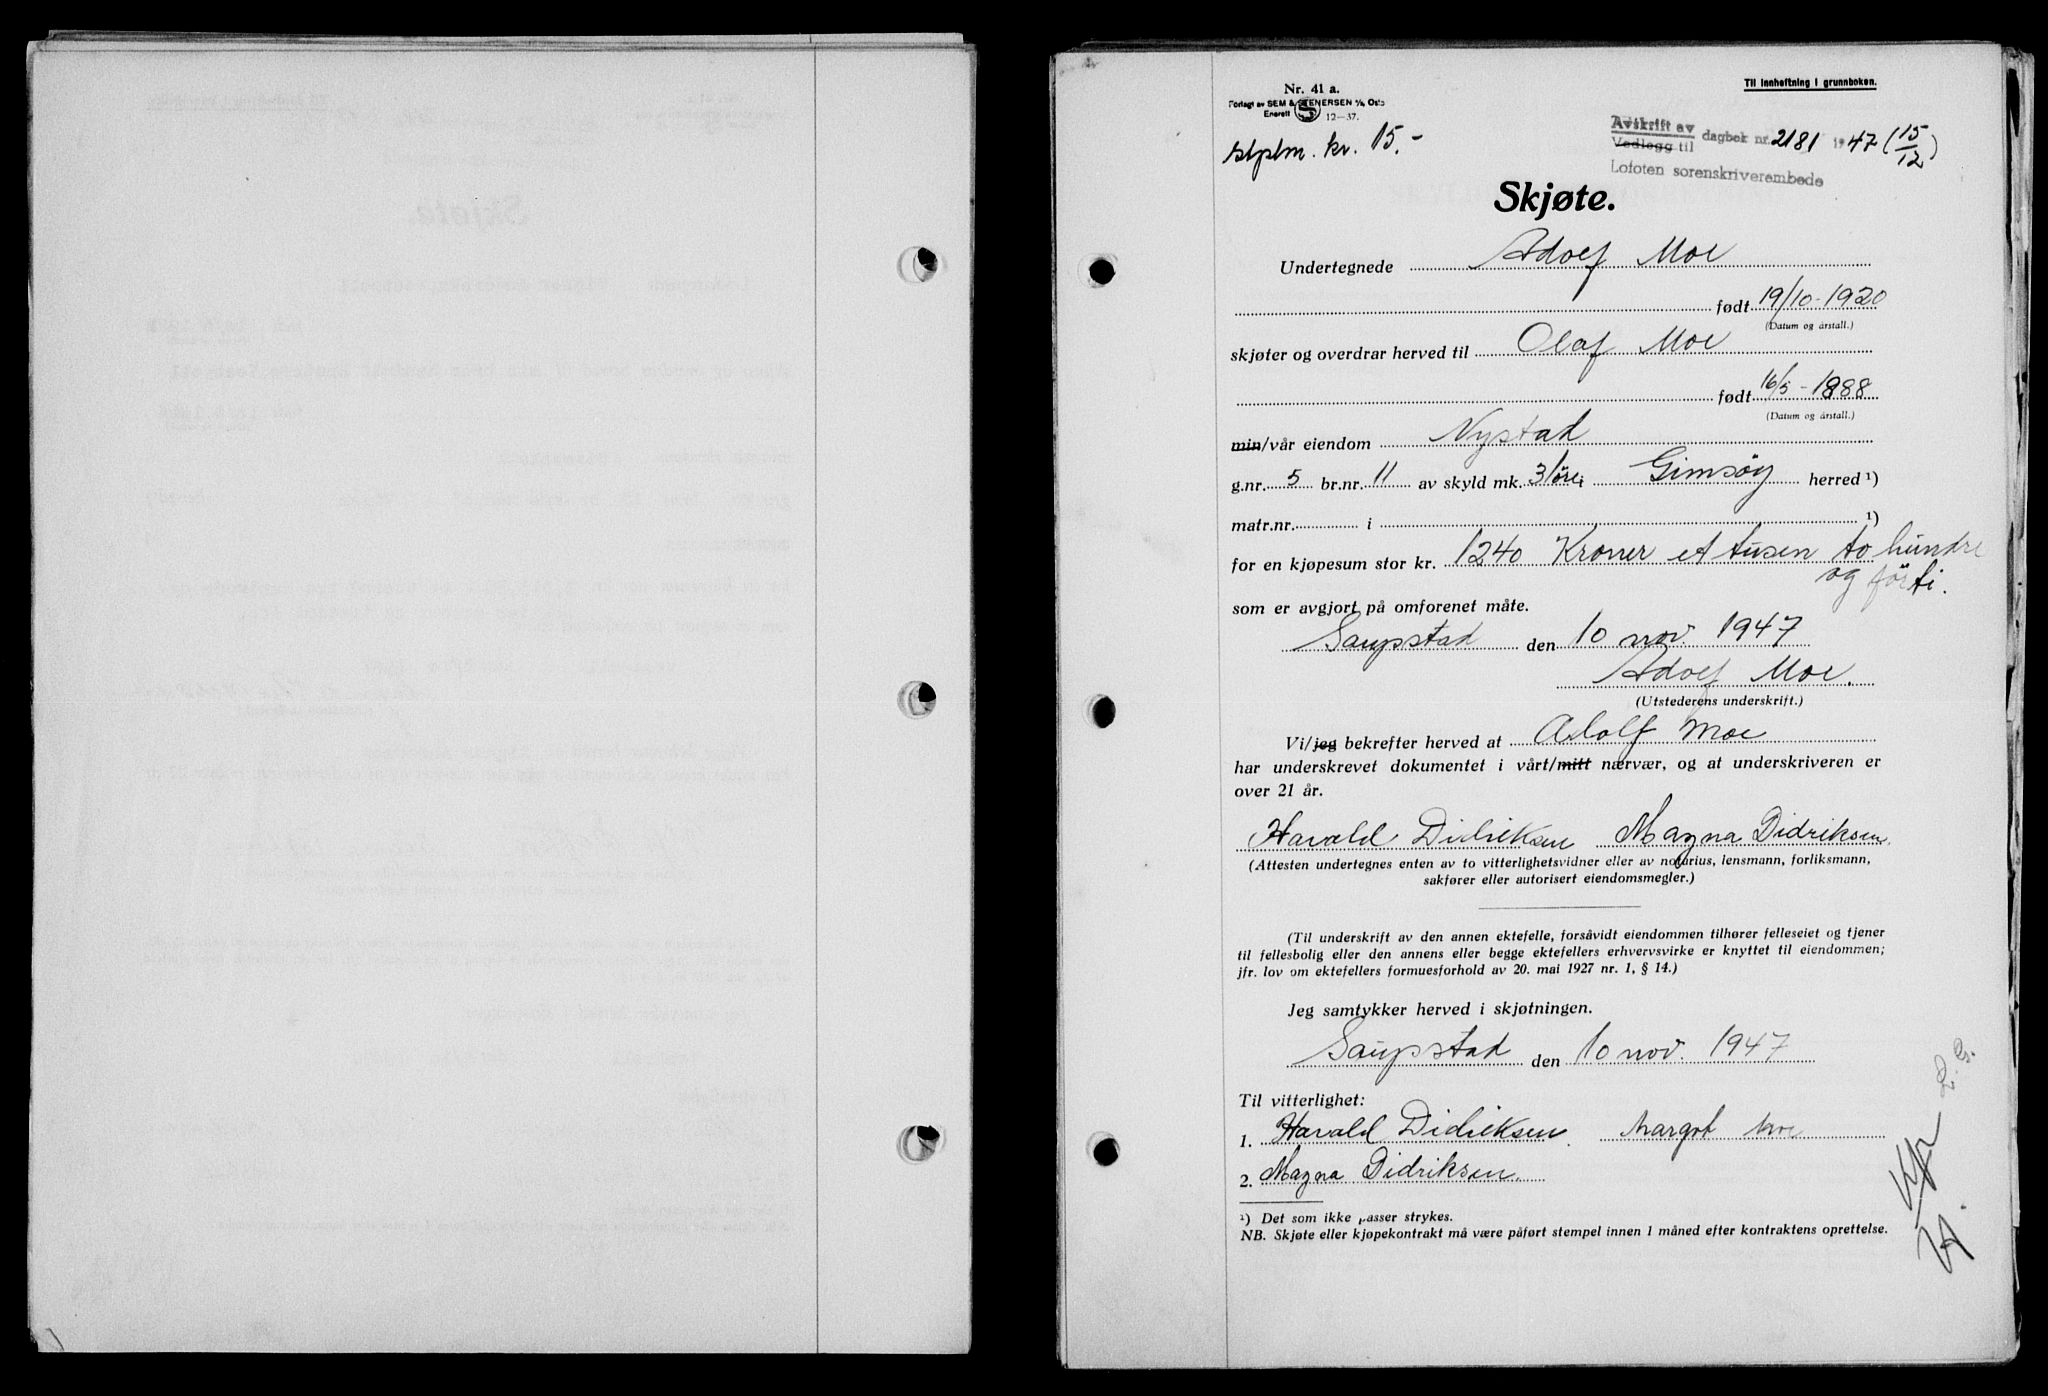 Nr. 41 a.
Forlagt av SEM & STENERSEN A/S, Oslo
Enerett S 12-37.
Til innheftning i grunnboken.
stplm. kr. 15.-
Avskrift av
Vedlegg til
dagbok nr. 2181 1947 (15/12)
Lofoten sorenskriverembede
Skjøte.
Undertegnede Adolf Moe
født 19/10-1920
(Datum og årstall.)
skjøter og overdrar herved til Olaf Moe
født 16/5-1888
(Datum og årstall.)
min/vår eiendom Nystad
g.nr. 5 br.nr. 11 av skyld mk. 31 øre i Gimsøy herred ¹)
matr.nr. i ¹)
for en kjøpesum stor kr. 1240 Kroner et tusen to hundre
og førti.
som er avgjort på omforenet måte.
Saupstad den 10 nov. 1947
Adolf Moe.
(Utstederens underskrift.)
Vi/jeg bekrefter herved at Adolf Moe
har underskrevet dokumentet i vårt/mitt nærvær, og at underskriveren er
over 21 år.
Harald Didriksen Magna Didriksen.
(Attesten undertegnes enten av to vitterlighetsvidner eller av notarius, lensmann, forliksmann,
sakfører eller autorisert eiendomsmegler.)
(Til underskrift av den annen ektefelle, forsåvidt eiendommen tilhører felleseiet og tjener
til fellesbolig eller den annens eller begge ektefellers erhvervsvirke er knyttet til eiendommen;
jfr. lov om ektefellers formuesforhold av 20. mai 1927 nr. 1, § 14.)
Jeg samtykker herved i skjøtningen.
Saupstad den 10 nov. 1947
Til vitterlighet:
1. Harald Didriksen. Margot Moe
2. Magna Didriksen.
¹) Det som ikke passer strykes.
NB. Skjøte eller kjøpekontrakt må være påført stempel innen 1 måned efter kontraktens oprettelse.